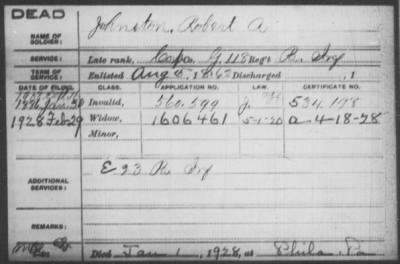 DEAD
NAME OF SOLDIER: Johnston, Robert A.
SERVICE: Late rank, Co. G, 118 Reg't Pa. Inf
TERM OF SERVICE: Enlisted Aug 8, 1862 Discharged , 1
DATE OF FILING. CLASS. APPLICATION NO. LAW. CERTIFICATE NO.
1886 Jan. 30 Invalid, 560.599 534.198
1928 Feb 29 Widow, 1606461 5-1-20 a-4-18-28
Minor,
ADDITIONAL SERVICES: E 23 Pa. Inf
REMARKS:
Died Jan 1, 1928, at Phila. Pa